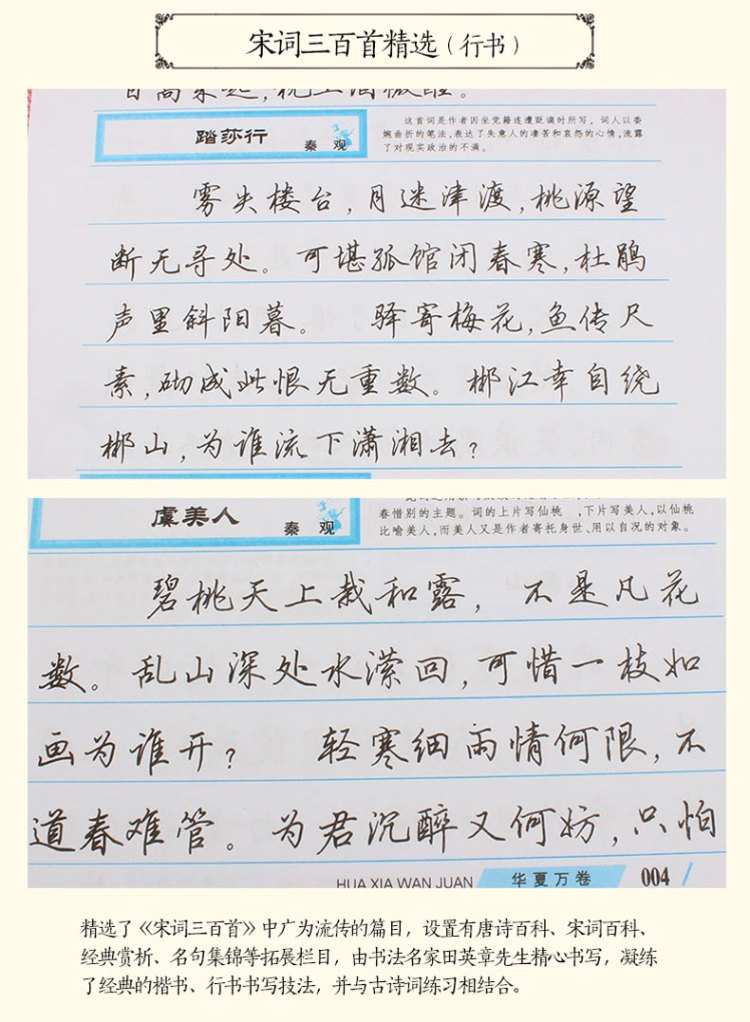 宋词三百首精选(行书)
踏莎行
秦 观
这首词是作者因坐党籍连遭贬谪时所写。词人以委
婉曲折的笔法,表达了失意人的凄苦和哀怨的心情,流露
了对现实政治的不满。
雾失楼台,月迷津渡,桃源望
断无寻处。可堪孤馆闭春寒,杜鹃
声里斜阳暮。 驿寄梅花,鱼传尺
素,砌成此恨无重数。郴江幸自绕
郴山,为谁流下潇湘去?
虞美人
秦 观
春惜别的主题。词的上片写仙桃 ,下片写美人,以仙桃
比喻美人,而美人又是作者寄托身世、用以自况的对象。
碧桃天上栽和露,不是凡花
数。乱山深处水潆回,可惜一枝如
画为谁开? 轻寒细雨情何限,不
道春难管。为君沉醉又何妨,只怕
HUA XIA WAN JUAN 华夏万卷 004
精选了《宋词三百首》中广为流传的篇目,设置有唐诗百科、宋词百科、
经典赏析、名句集锦等拓展栏目,由书法名家田英章先生精心书写,凝练
了经典的楷书、行书书写技法,并与古诗词练习相结合。